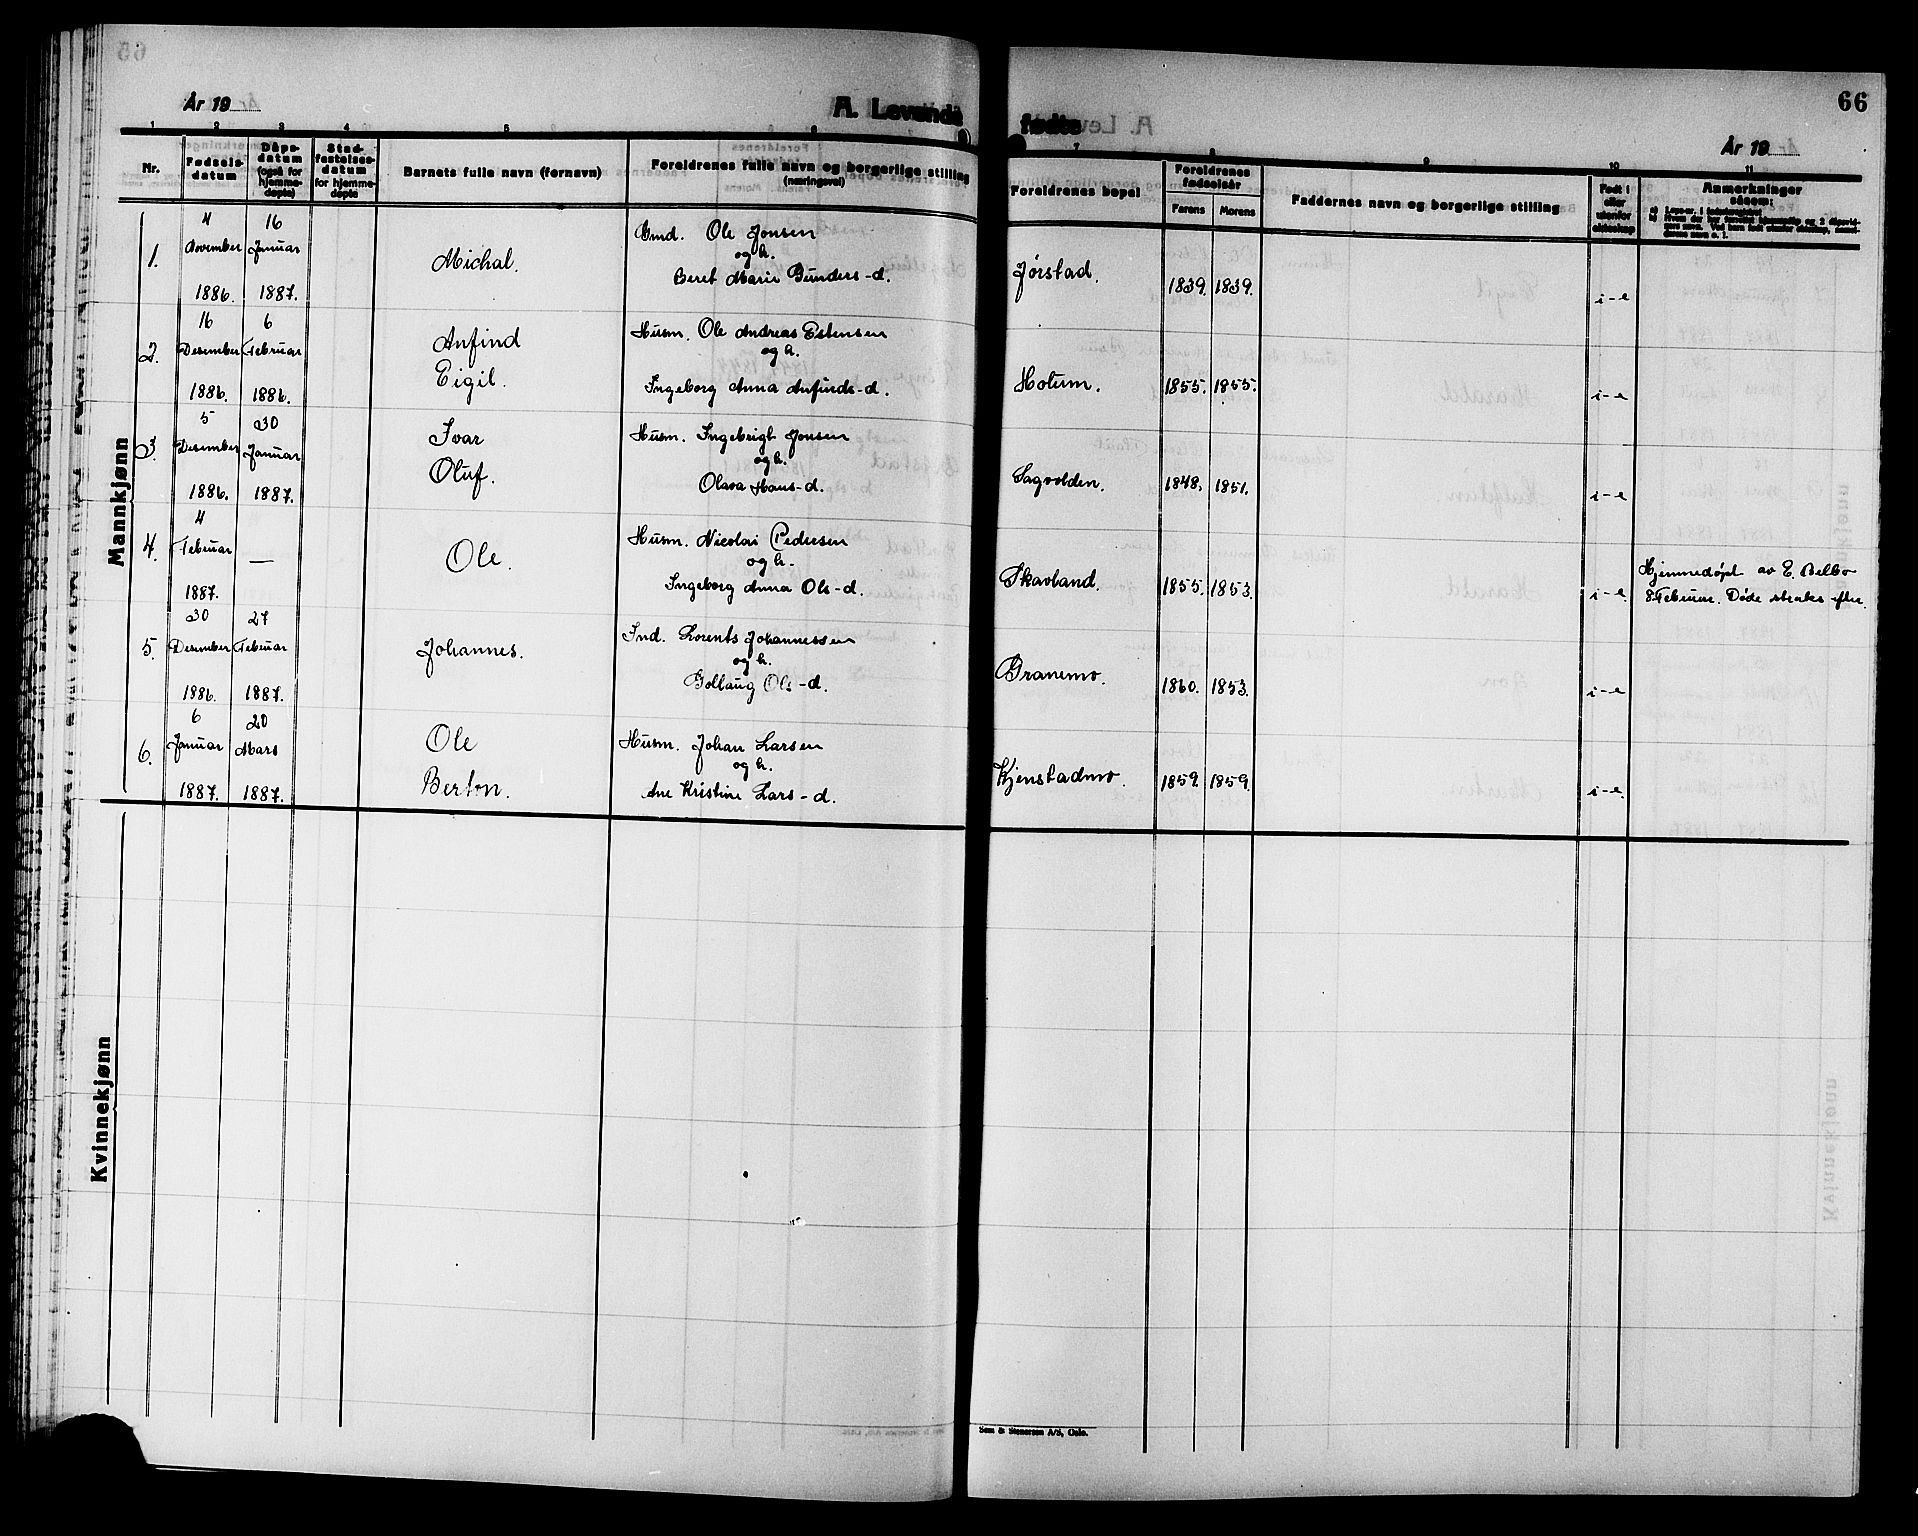 66
År 19
A. Levende
fødte
År 19
1 2 3 4 5 6 7 8 9 10 11
Nr.
Fødsels-
datum
Dåps-
datum
(også for
hjemme-
døpte)
Stad-
festelses-
datum
for hjemme-
døpte
Barnets fulle navn (fornavn)
Foreldrenes fulle navn og borgerlige stilling
(næringsvei)
Foreldrenes bopel
Foreldrenes
fødselsår
Farens Morens
Faddernes navn og borgerlige stilling
Født i
eller
utenfor
ekteskap
Anmerkninger
såsom:
Mannkjønn
1.
4
November
1886.
16
Januar
1887.
Michal.
Gmd. Ole Jonsen
og h.
Beret Marie Gunders-d.
Jørstad.
1839. 1839.
i-e
2.
16
Desember
1886.
6
Februar
1886.
Anfind
Eigil.
Husm. Ole Andreas Estensen
og h.
Ingeborg Anna Anfinds-d.
Hotum.
1855. 1855.
i-e
3.
5
Desember
1886.
30
Januar
1887.
Ivar
Oluf.
Husm. Ingebrigt Jonsen
og h.
Olava Hans-d.
Sagvolden.
1848. 1851.
i-e
4.
4
Februar
1887.
—
Ole.
Husm. Nicolai Pedersen
og h.
Ingeborg Anna Ols-d.
Skavland.
1855. 1853.
i-e
Hjemmedøpt av E. Belbo
8. Februar. Døde straks efter.
5.
30
Desember
1886.
27
Februar
1887.
Johannes.
Ind. Lorents Johannessen
og h.
Gollaug Ols-d.
Granemo.
1860. 1853.
i-e
6.
6
Januar
1887.
20
Mars
1887.
Ole
Berton.
Husm. Johan Larsen
og h.
Ane Kristine Lars-d.
Kjenstadmo.
1859. 1859.
i-e
Kvinnekjønn
Sem & Stenersen A/S, Oslo.